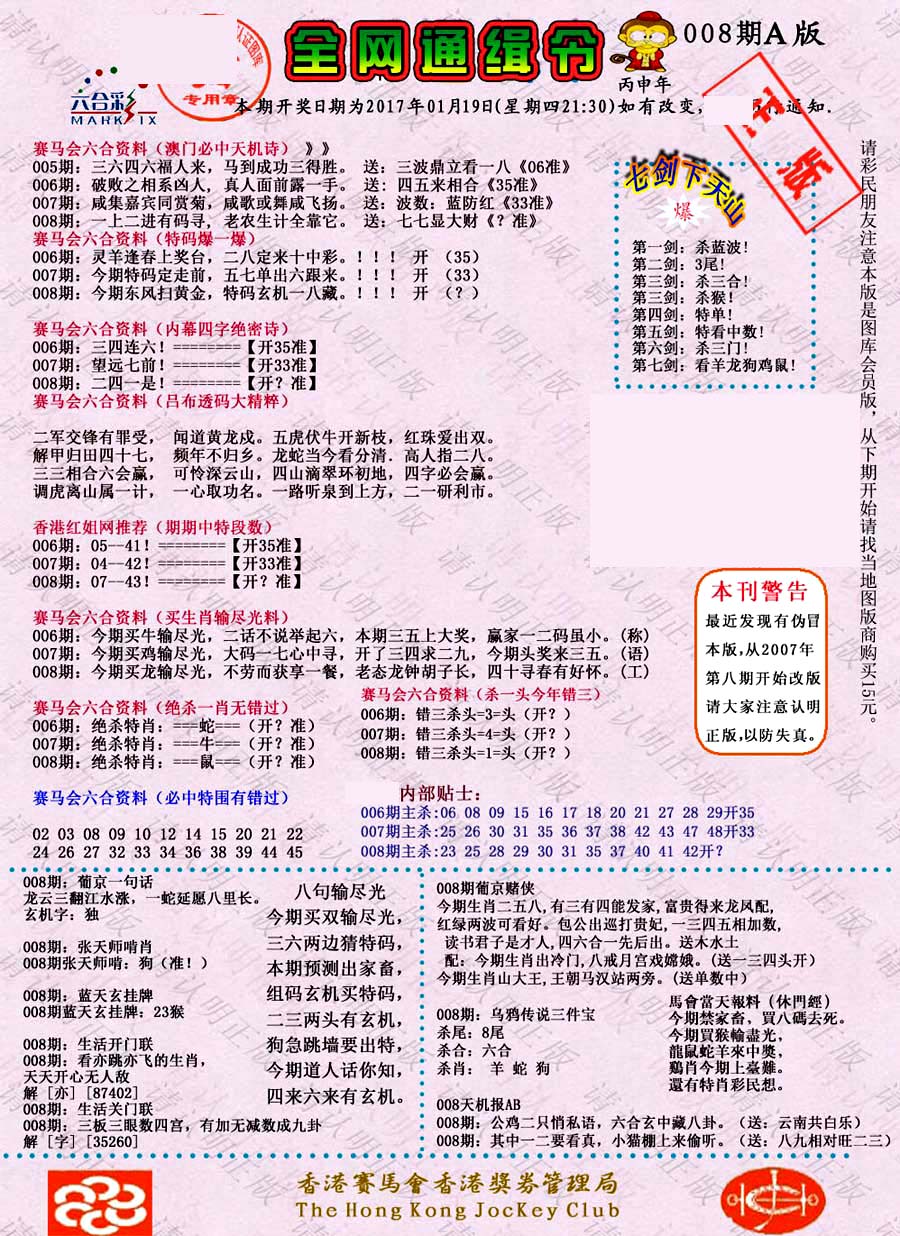 全网通缉令
008期A版
丙申年
六合彩
MARK SIX
专用章
本期开奖日期为2017年01月19日(星期四21:30)如有改变,
通知.
正版
赛马会六合资料（澳门必中天机诗）》》
005期：三六四六福人来，马到成功三得胜。 送：三波鼎立看一八《06准》
006期：破败之相系凶人，真人面前露一手。 送：四五来相合《35准》
007期：咸集嘉宾同赏菊，咸歌或舞咸飞扬。 送：波数：蓝防红《33准》
008期：一上二进有码寻，老农生计全靠它。 送：七七显大财《？准》
赛马会六合资料（特码爆一爆）
006期：灵羊逢春上奖台，二八定来十中彩。！！！ 开 （35）
007期：今期特码定走前，五七单出六跟来。！！！ 开 （33）
008期：今期东风扫黄金，特码玄机一八藏。！！！ 开 （？）
赛马会六合资料（内幕四字绝密诗）
006期：三四连六！========【开35准】
007期：望远七前！========【开33准】
008期：二四一是！========【开？准】
赛马会六合资料（吕布透码大精粹）
二军交锋有罪受， 闻道黄龙戍。五虎伏牛开新枝，红珠爱出双。
解甲归田四十七， 频年不归乡。龙蛇当今看分清，高人指二八。
三三相合六会赢， 可怜深云山，四山滴翠环初地，四字必会赢。
调虎离山属一计， 一心取功名。一路听泉到上方，二一研利市。
香港红姐网推荐（期期中特段数）
006期：05--41！========【开35准】
007期：04--42！========【开33准】
008期：07--43！========【开？准】
赛马会六合资料（买生肖输尽光料）
006期：今期买牛输尽光，二话不说举起六，本期三五上大奖，赢家一二码虽小。(称)
007期：今期买鸡输尽光，大码一七心中寻，开了三四求二九，今期头奖来三五。(语)
008期：今期买龙输尽光，不劳而获享一餐，老态龙钟胡子长，四十寻春有好怀。(工)
赛马会六合资料（绝杀一肖无错过）
006期：绝杀特肖：===蛇===（开？准）
007期：绝杀特肖：===牛===（开？准）
008期：绝杀特肖：===鼠===（开？准）
赛马会六合资料（杀一头今年错三）
006期：错三杀头=3=头（开？）
007期：错三杀头=4=头（开？）
008期：错三杀头=1=头（开？）
赛马会六合资料（必中特围有错过）
02 03 08 09 10 12 14 15 20 21 22
24 26 27 32 33 34 36 38 39 44 45
内部贴士：
006期主杀:06 08 09 15 16 17 18 20 21 27 28 29开35
007期主杀:25 26 30 31 35 36 37 38 42 43 47 48开33
008期主杀:23 25 28 29 30 31 35 37 40 41 42开？
七剑下天山
爆
第一剑：杀蓝波！
第二剑：3尾！
第三剑：杀三合！
第三剑：杀猴！
第四剑：特单！
第五剑：特看中数！
第六剑：杀三门！
第七剑：看羊龙狗鸡鼠！
请彩民朋友注意本版是图库会员版，从下期开始请找当地图版商购买15元。
本刊警告
最近发现有伪冒
本版,从2007年
第八期开始改版
请大家注意认明
正版,以防失真。
008期：葡京一句话
龙云三翻江水涨，一蛇延愿八里长。
玄机字：独
008期：张天师啃肖
008期张天师啃：狗（准！）
008期：蓝天玄挂牌
008期蓝天玄挂牌：23猴
008期：生活开门联
008期：看亦跳亦飞的生肖，
天天开心无人敌
解 [亦] [87402]
008期：生活关门联
008期：三板三眼数四宫，有加无减数成九卦
解 [字] [35260]
八句输尽光
今期买双输尽光，
三六两边猜特码，
本期预测出家畜，
组码玄机买特码，
二三两头有玄机，
狗急跳墙要出特，
今期道人话你知，
四来六来有玄机。
008期葡京赌侠
今期生肖二五八,有三有四能发家,富贵得来龙凤配,
红绿两波可看好。包公出巡打贵妃,一三四五相加数,
读书君子是才人,四六合一先后出。送木水土
配：今期生肖出冷门,八戒月宫戏嫦娥。(送一三四头开)
今期生肖山大王,王朝马汉站两旁。(送单数中)
008期：乌鸦传说三件宝
杀尾：8尾
杀合：六合
杀肖： 羊 蛇 狗
馬會當天報料（休門經）
今期禁家畜，買八碼去死。
今期買猴輸盡光，
龍鼠蛇羊來中獎，
鷄肖今期上臺難。
還有特肖彩民想。
008天机报AB
008期：公鸡二只悄私语，六合玄中藏八卦。（送：云南共白乐）
008期：其中一二要看真，小猫棚上来偷听。（送：八九相对旺二三）
香港賽馬會香港獎券管理局
The Hong Kong JocKey Club